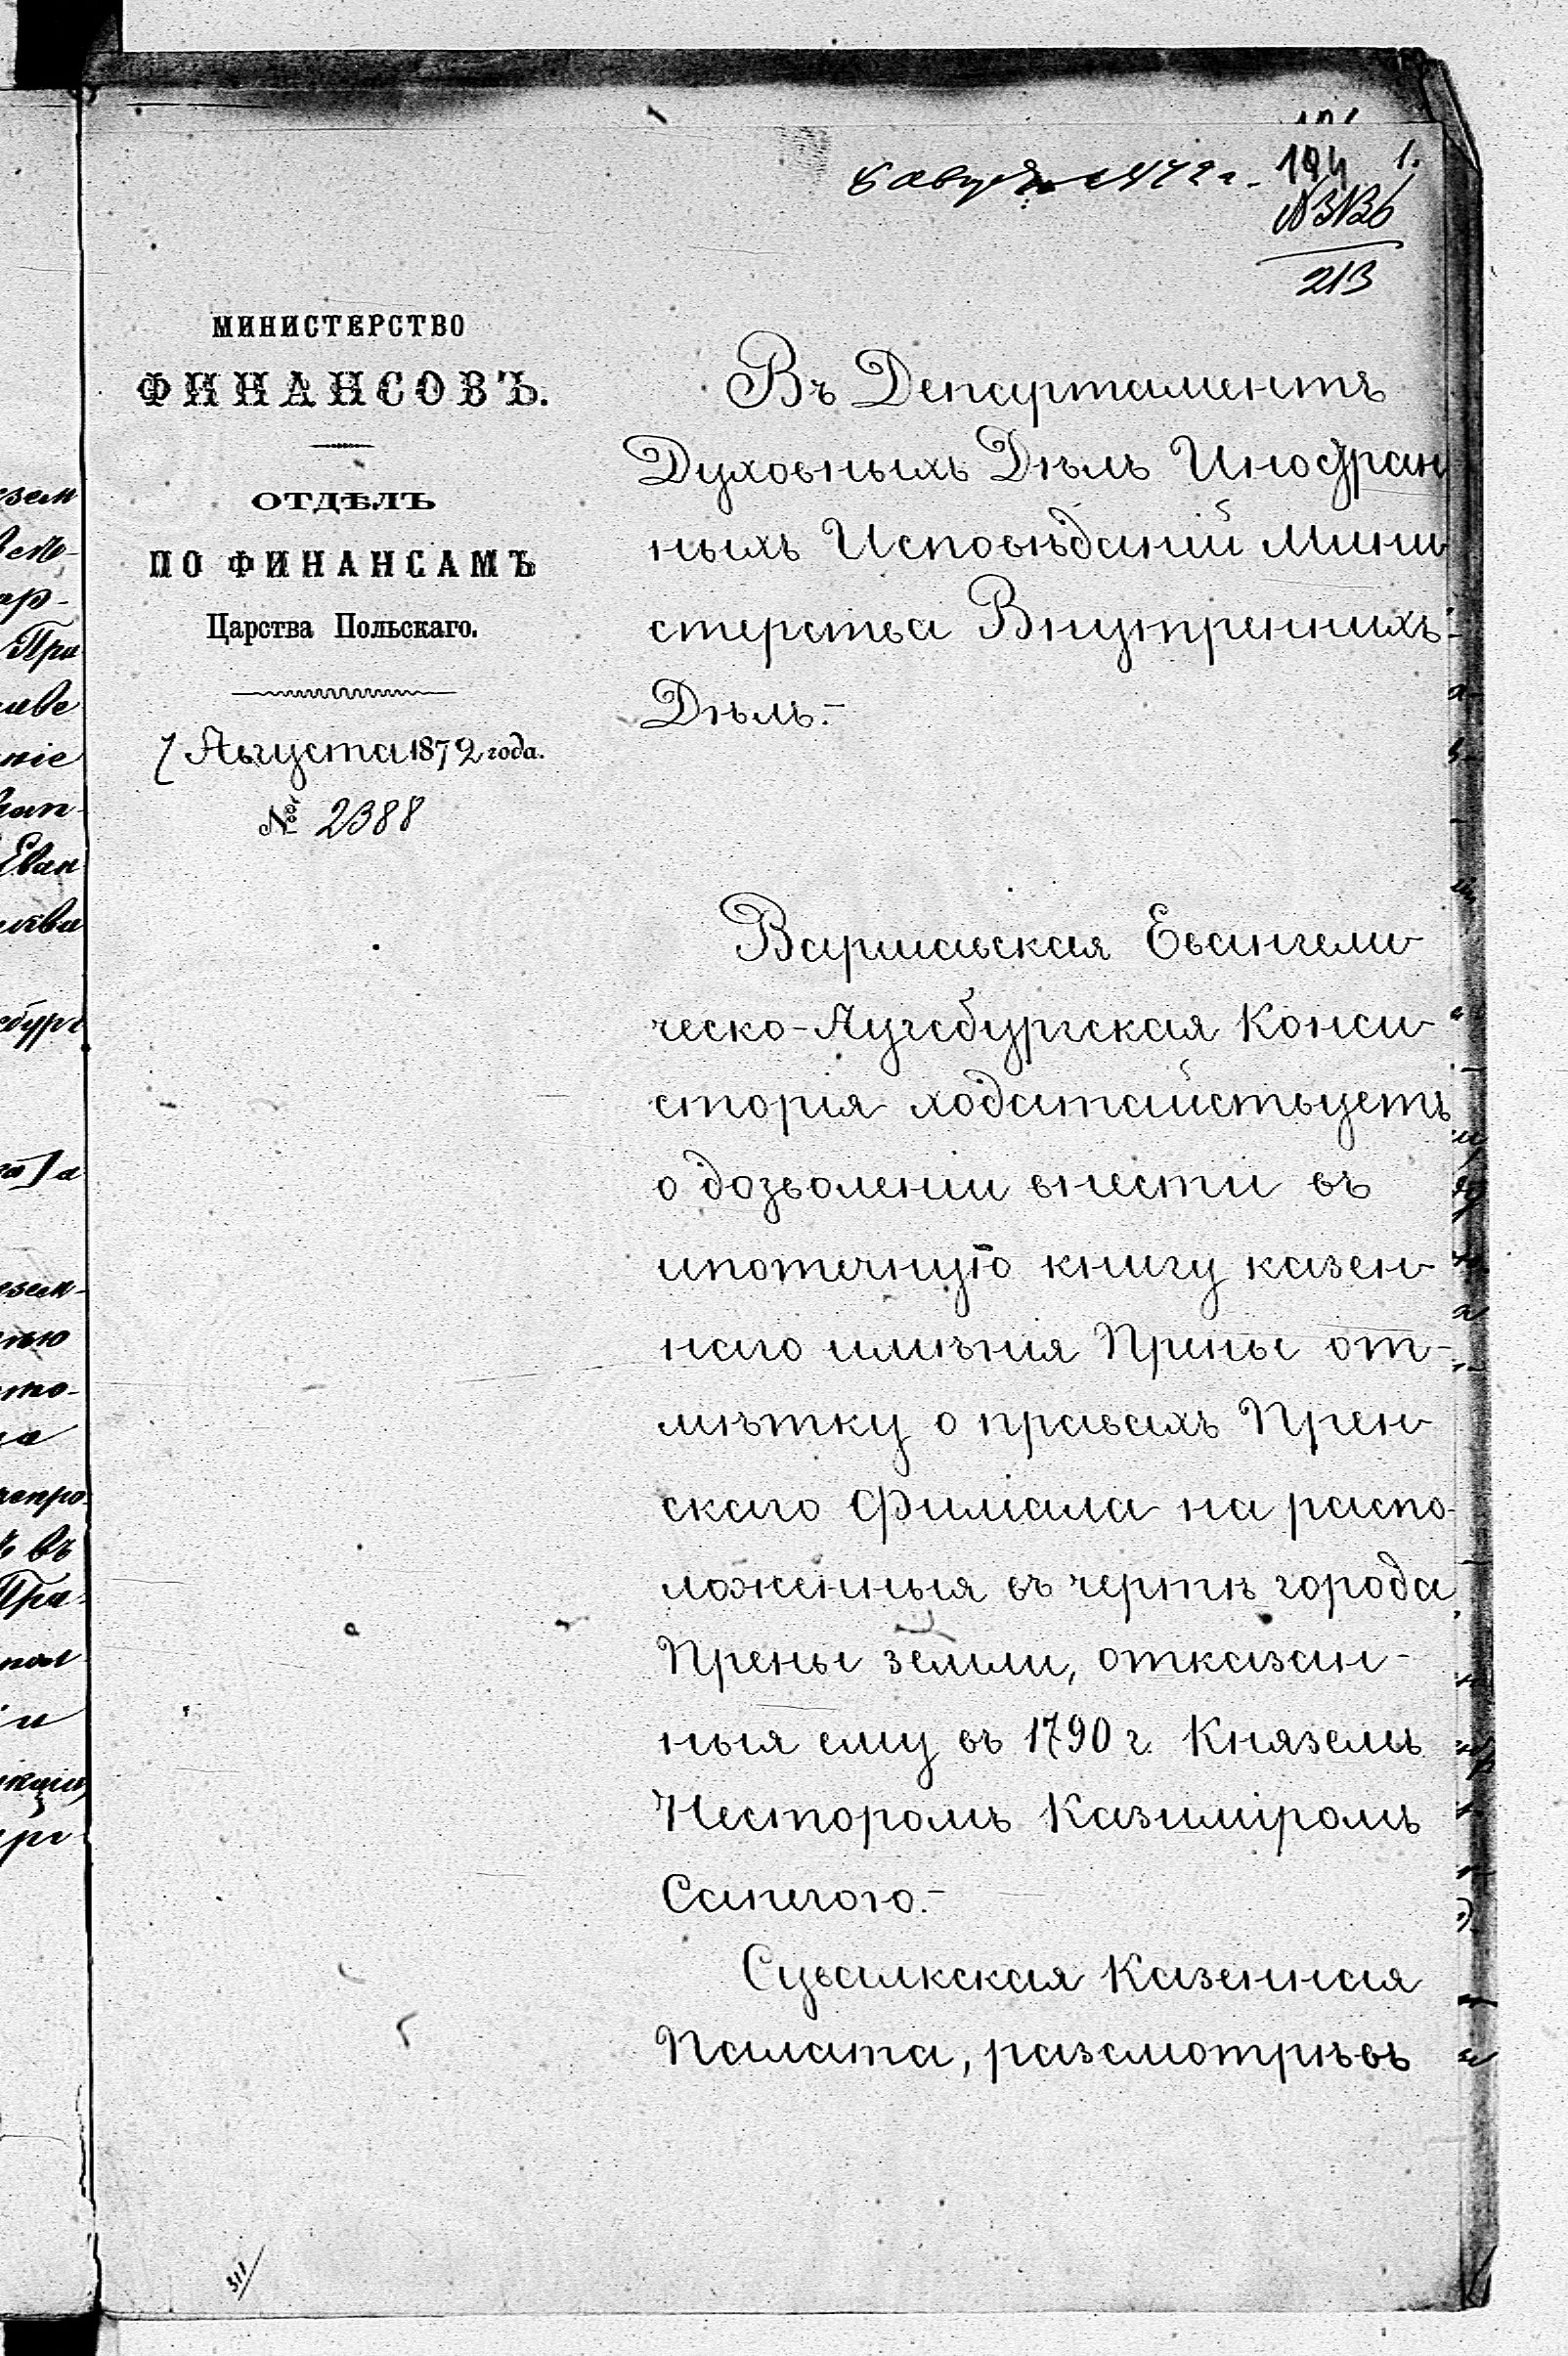 194 1.
№ 3136
213
МИНИСТЕРСТВО
ФИНАНСОВЪ.
ОТДѢЛЪ
ПО ФИНАНСАМЪ
Царства Польскаго.
7 Августа 1872 года.
№ 2388
Въ Департаментъ
Духовныхъ Дѣлъ Иностран
ныхъ Исповѣданій Мини
стерства Внутреннихъ
Дѣлъ.-
Варшавская Евангели
ческо-Аугсбургская Конси
сторія ходатайствуетъ
о дозволеніи внести въ
ипотечную книгу казен
наго имѣнія Прены от-
мѣтку о правахъ Прен
скаго Филіала на распо
ложенныя въ чертѣ города
Прены земли, отказан-
ныя ему въ 1790 г. Княземъ
Несторомъ Казиміромъ
Сапегою.-
Сувалкская Казенная
Палата, разсмотрѣвъ
311